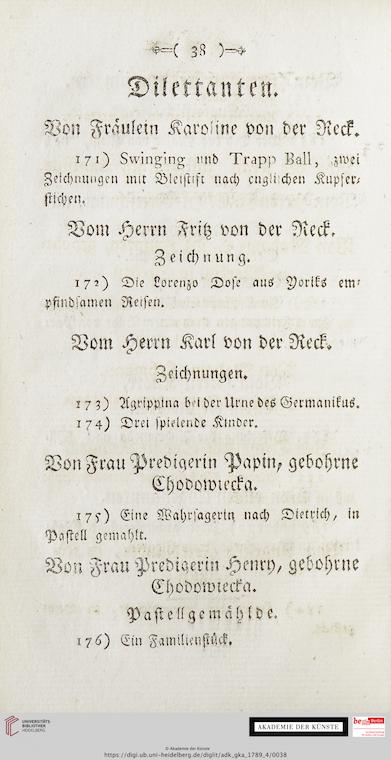 ( 38 )
Dilettanten.
Von Fräulein Karoline von der Reck.
171) Swinging und Trapp Ball, zwei
Zeichnungen mit Bleistift nach englischen Kupfer-
stichen.
Vom Herrn Fritz von der Reck.
Zeichnung.
172) Die Lorenzo Dose aus Yoriks em-
pfindsamen Reisen.
Vom Herrn Karl von der Reck.
Zeichnungen.
173) Agrippina bei der Urne des Germanikus.
174) Drei spielende Kinder.
Von Frau Predigerin Papin, gebohrne
Chodowiecka.
175) Eine Wahrsagerin nach Dietrich, in
Pastell gemahlt.
Von Frau Predigerin Henry, gebohrne
Chodowiecka.
Pastellgemählde.
176) Ein Familienstück.
UNIVERSITÄTS-
BIBLIOTHEK
HEIDELBERG
AKADEMIE DER KÜNSTE
be Berlin
© Akademie der Künste
https://digi.ub.uni-heidelberg.de/diglit/adk_gka_1789_4/0038